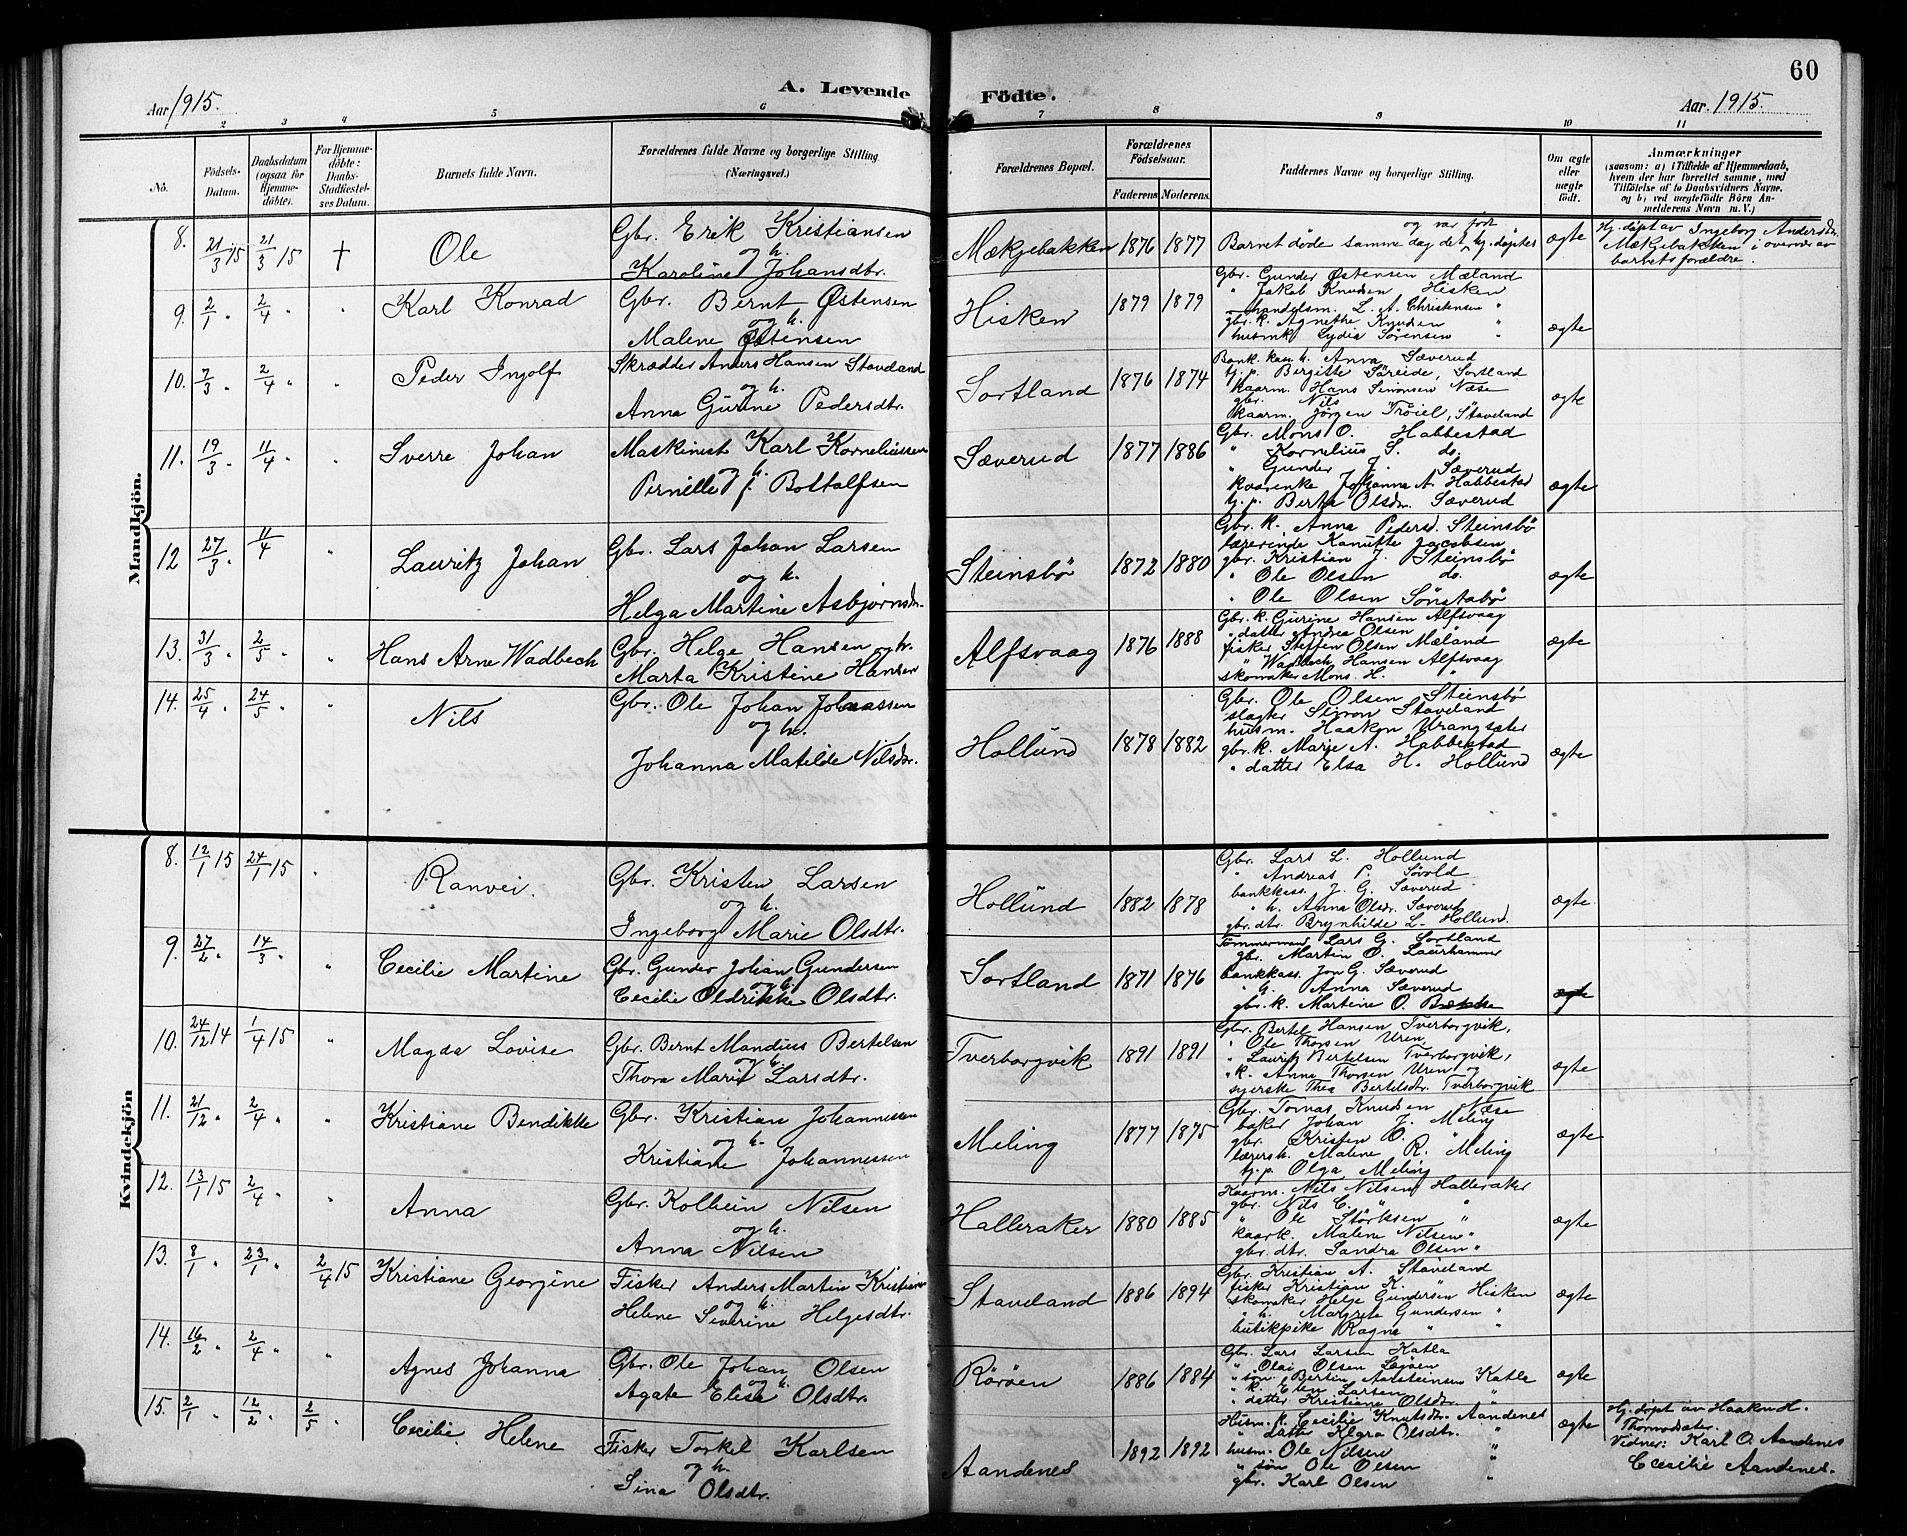 60
Aar 1915.
A. Levende Födte.
Aar 1915.
1 2 3 4 5 6 7 8 9 10 11
No.
Födsels-Datum.
Daabsdatum (ogsaa for Hjemmedöbte).
For Hjemmedöbte: Daabs-Stadfæstelses Datum.
Barnets fulde Navn.
Forældrenes fulde Navne og borgerlige Stilling (Næringsvei.)
Forældrenes Bopæl.
Forældrenes Födselsaar.
Faderens Moderens
Faddernes Navne og borgerlige Stilling.
Om ægte eller uægte födt.
Anmærkninger
(saasom: a) i Tilfælde af Hjemmedaab,
hvem der har forrettet samme, med
Tilföielse af to Daabsvidners Navne,
og b) ved uægtefödte Börn An-
melderens Navn m. V.)
Mandkjön.
8. 21/3 15 21/3 15 † Ole
Gbr. Erik Kristiansen
og h.
Karoline Johansdtr.
Mækjebakken 1876 1877
og var født
Barnet døde samme dag det hj.døptes
ægte
Hj. døpt av Ingeborg Andersdtr.
Mækjebakken i overvær av
barnets forældre.
9. 2/1 " 2/4 " " Karl Konrad
Gbr. Bernt Østensen
og h.
Malene Østensen
Hisken 1879 1879
Gbr. Gunder Østensen Mæland
" Jakob Knudsen Hisken
handelsm. L. A. Christensen "
gbr. k. Agnethe Knudsen "
husmk Lydia Sørensen "
ægte
10. 7/3 " 2/4 " " Peder Ingolf
Skrædder Anders Hansen Staveland
og h.
Anna Gurine Pedersdtr.
Sortland 1876 1874
Bank.kas. h. Anna Sæverud
tj. p. Bergitte Søreide, Sortland
kaarm. Hans Simonsen Næse
gbr. Nils
kaarm. Jørgen Trôiel, Staveland
ægte
11. 19/3 " 11/4 " " Sverre Johan
Maskinist Karl Korneliussen
og h.
Pernille J. Bottolfsen
Sæverud 1877 1886
Gbr. Mons O. Habbestad
" Kornelius S. do.
" Gunder J. Sæverud
kvarenke Johanna A. Habbestad
tj. p. Berta Olsdtr. Sæverud
ægte
12 27/3 " 11/4 " Lauritz Johan
Gbr. Lars Johan Larsen
og h.
Helga Martine Asbjørnsdtr.
Steinsbø 1872 1880
Gbr. k. Anna Pedersd. Steinsbø
lærerinde Kanutte Jacobsen
gbr. Kristian J. Steinsbø
" Ole Olsen do.
" Ole Olsen Sønstabø
ægte
13. 31/3 " 2/5 " " Hans Arne Wadbech
Gbr. Helge Hansen og h.
Marta Kristine Hansen
Alfsvaag 1876 1888
Gbr. k. Gurine Hansen Alfsvaag
" datter Andrea Olsen
fisker Steffen Olsen Mæland
" Wadbech Hansen Alfsvaag
skomaker Mons H. "
ægte
14. 25/4 " 24/5 " " Nils
Gbr. Ole Johan Johnassen
og h.
Johanna Matilde Nilsdtr.
Hollund 1878 1882
Gbr. Ole Olsen Steinsbø
slagter Simon Staveland
husm. Haakon Urangsæter
gbr. k. Marie A. Habbestad
" datter Elsa H. Hollund
ægte
Kvindekjön
8. 12/1 15 24/1 15 " Ranvei.
Gbr. Kristen Larsen
og h.
Ingeborg Marie Olsdtr.
Hollund 1882 1878
Gbr. Lars L. Hollund
" Andreas P. Søvold
bankkass. J. G. Sæverud
" h. Anna Olsdr. Sæverud
gbr. dtr. Brynhilde L. Hollund.
ægte.
9. 27/2 " 14/3 " " Cecilie Martine
Gbr. Gunder Johan Gundersen
og h.
Cecilie Oldrikke Olsdtr.
Sortland 1871 1876
Tømmermand Lars G. Sortland
gbr. Martin O. Laurhammer
bankkass. Jon G. Sæverud
" h. Anna Sæverud
gbr. k. Martine O. Bække
ægte
10. 24/12 14 1/4 15 " Magda Lovise
Gbr. Bernt Mandius Bertelsen
og h.
Thora Marie Larsdtr.
Tverborgvik 1891 1891
Gbr. Bertel Hansen Tverborgvik,
" Ole Thorsen Uren,
" Lauritz Bertelsen Tverborgvik,
" k. Anna Thorsen Uren og
syerske Thea Bertelsdtr. Tverborgvik
ægte
11. 21/12 " 2/4 " " Kristiane Bendikte
Gbr. Kristian Johannessen
og h.
Kristiane Johannessen
Meling 1877 1875
Gbr. Tomas Knudsen Næse
baker Johan J. Meling
gbr. Kristen O. "
lærersh. Malene R. Meling
tj. p. Olga Meling
ægte
12. 13/1 15 2/4 " " Anna
Gbr. Kolbein Nilsen
og h.
Anna Nilsen
Halleraker 1880 1885
Kaarm. Nils Nilsen Halleraker
gbr. Nils C. "
" Ole Størksen "
kaark. Malene Nilsen "
gbr. dtr. Sandra Olsen "
ægte
13. 8/1 " 23/1 " 2/4 15 Kristiane Georgine
Fisker Anders Martin Kristians
og h.
Helene Severine Helgesdtr.
Staveland 1886 1894
Gbr. Kristian A. Staveland
fisker Kristian K. "
skomaker Helge Gundersen Hisken
" h. Margrete Gundersen "
butikpike Ragna "
ægte
14. 16/2 " 2/4 " " Agnes Johanna
Gbr. Ole Johan Olsen
og h.
Agate Elise Olsdtr.
Rørøen 1886 1884
Gbr. Lars Larsen Katla
" Olai Olsen
" søn Bertin Katla
" k. Elen Larsen "
" datter Kristiane Olsdtr. "
ægte
15. 2/1 " 12/2 " 2/5 " Cecilie Helene
Fisker Torkel Karlsen
og h.
Sina Olsdtr.
Aandenes 1892 1892
Husm. k. Cecilie Knutsdtr. Aandenes
" datter Klara Olsdtr. "
husm. Ole Nilsen "
" søn Ole Olsen "
gbr. Karl Olsen "
ægte
Hj. døpt av Haakon H.
Thormodsæter.
Vidner: Karl O. Aandenes
Cecilie Aandenes.